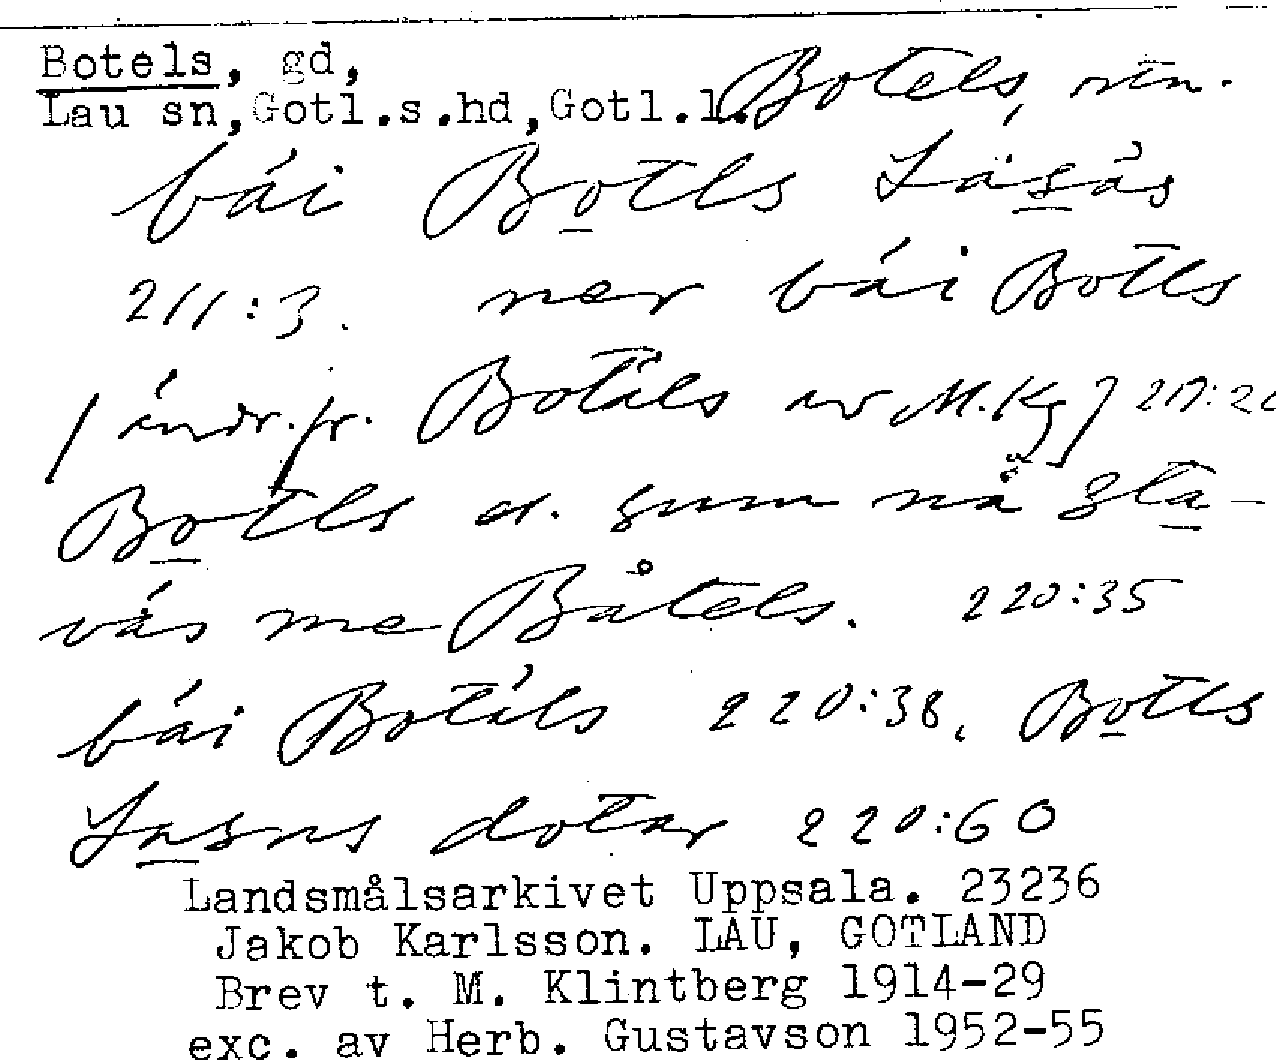 Botels, gd, Botels, otn.
Lau sn, Gotl.s.hd, Gotl.l.
bái Botls Lasás
211:3. ner bái Botls
[ändr. fr. Botäls av M.Kg]
Botls el. sum nå sta-
vás me Båtels. 220:35
bái Botäls 220:38. Botls
Lasas dotar 220:60
Landsmålsarkivet Uppsala. 23236
Jakob Karlsson. LAU, GOTLAND
Brev t. M. Klintberg 1914-29
exc. av Herb. Gustavson 1952-55